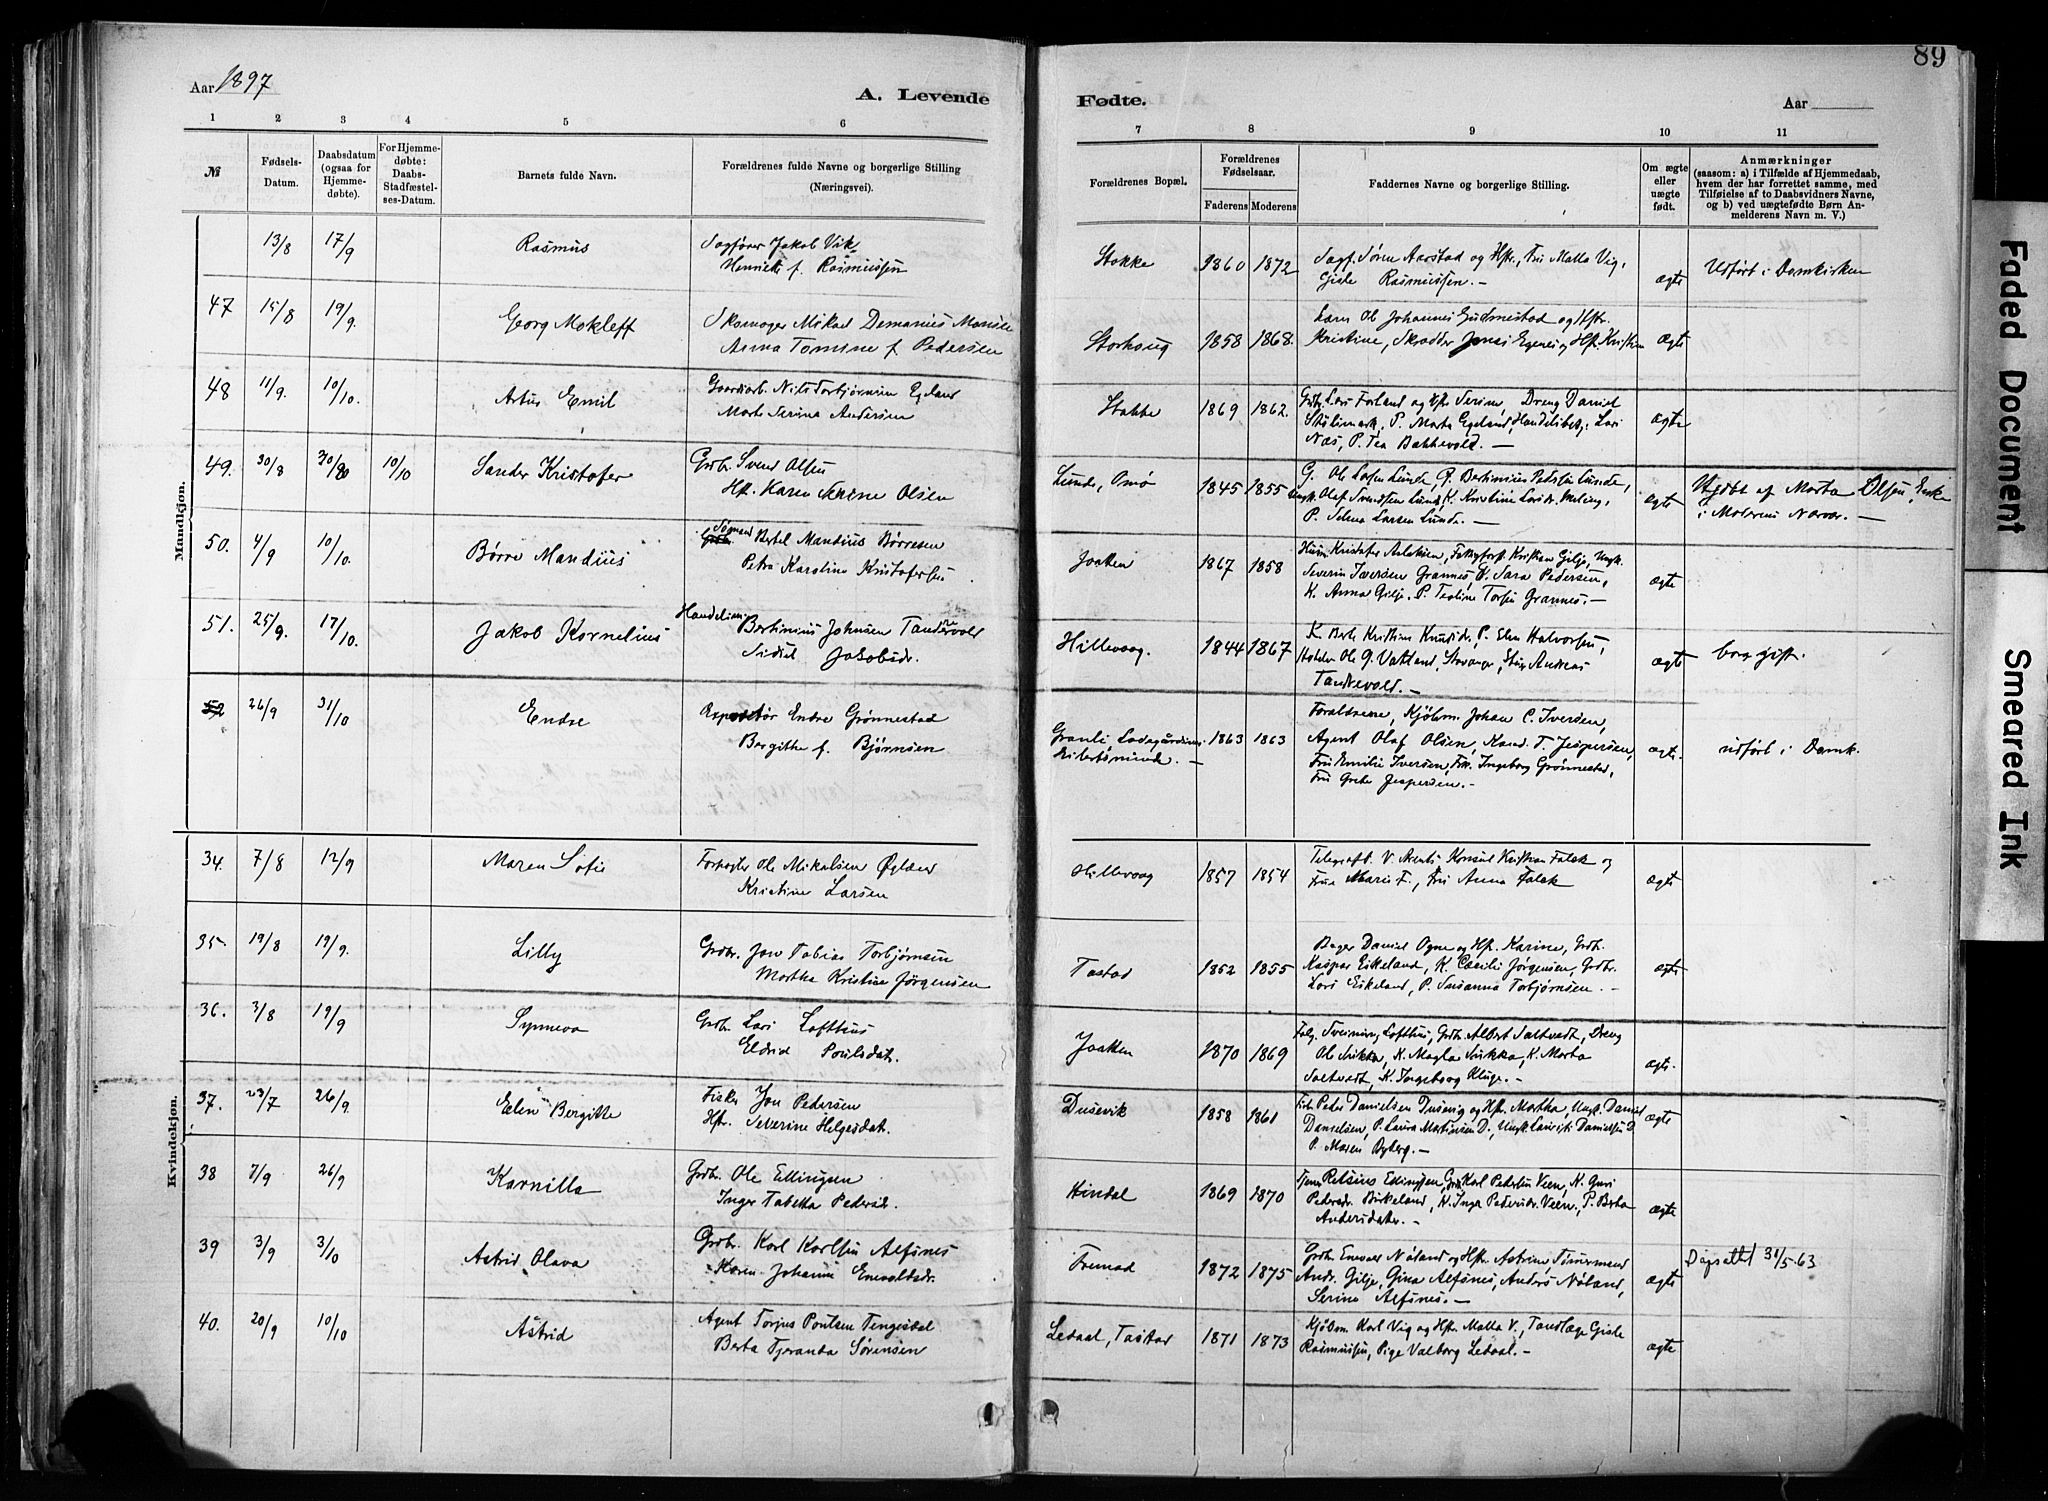 89
Aar 1897
A. Levende
Fødte.
Aar
1 2 3 4 5 6 7 8 9 10 11
№
Fødsels-
Datum.
Daabsdatum
(ogsaa for
Hjemme-
døbte).
For Hjemme-
døbte:
Daabs-
Stadfæstel-
ses-Datum.
Barnets fulde Navn.
Forældrenes fulde Navne og borgerlige Stilling
(Næringsvei).
Forældrenes Bopæl.
Forældrenes
Fødselsaar.
Faderens Moderens
Faddernes Navne og borgerlige Stilling.
Om ægte
eller
uægte
født.
Anmærkninger
(saasom: a) i Tilfælde af Hjemmedaab,
hvem der har forrettet samme, med
Tilføielse af to Daabsvidners Navne,
og b) ved uægtefødte Børn An-
melderens Navn m. V.)
Mandkjøn.
13/8 17/9 Rasmus
Sagfører Jakob Vik
Henriette f. Rasmussen
Stokke 1860 1872
Sagf. Søren Aarstad og Hstr., Fru Malla Vig,
Giske Rasmussen.—
ægte
Udført i Domkirken
47 15/8 19/9. Georg Mokleff
Skomager Mikael Demanius
Anna Tomine f. Pedersen
Storhoug 1858 1868.
Ole Johannes Gudmestad og Hstr.
Kristine, Skrædder Jonas Egenes og Hst. Kristine
ægte
48 11/9. 10/10. Artur Emil
Gaardarb. Nils Torbjørnsen Egeland
Marte Serina Andersen
Stokke 1869 1862.
Grdbr. Lars Forland og Hstr Serine, Dreng Daniel
P. Marta Egeland, Handelsbetj. Lars
Næs, P. Tea Bakkevold.—
ægte
49. 30/8 10/10 Sander Kristofer
Grdb. Svend Olsen
Hst. Karen Serene Olsen
Lunde, Omø 1845 1855
G. Ole Larsen Lunde, G. Bertinius Pedersen Lunde,
Ungk. Olaf Svendsen Lunde, K. Kristine Larsdr. Meling,
P. Selma Larsen Lunde.—
ægte
Hjdbt af Marta Olsen, Enke
i Moderens Nærvær.—
50. 4/9 10/10. Børre Mandius
Sømand Bertel Mandius Børresen
Petra Karoline Kristofersen
Jaatten 1867 1858
Kristofer Aslaksen, Kristian Gilje, Ungk.
Severin Iversen Grannes, K. Sara Pedersen,
K. Anna Gilje, P. Teoline Torsen Grannes.—
ægte
51. 25/9. 17/10. Jakob Kornelius
Bertinius Johnsen Tandrevold
Sidsel Jakobsdr.
Hillevaag. 1844 1867
K. Berte Kristine Knudsdr, P. Elen Halvorsen,
Ole G. Vatland, Stavanger, Andreas
Tandrevold.—
ægte
borg. gift.
52 26/9 31/10 Endre
Expeditør Endre Grønnestad
Bergitha f. Bjørnsen
Granli Ladegaardsvei 1863 1863
Forældrene, Kjøbm. Johan C. Iversen,
Agent Olaf Olsen, Kand. T. Jespersen,
Fru Emilie Iversen, Frk. Ingeborg Grønnestad,
Fru Grete Jespersen.—
ægte.
udført i Domk.
Kvindekjøn.
34. 7/8 12/9 Maren Sofie
Forpagter Ole Mikalsen Øgland
Kristine Larsen
Hillevaag 1857 1854
Konsul Kristian Falck og
Frue Marie F., Fru Anna Falck
ægte
35 19/8 19/9. Lilly
Grdbr. Jon Tobias Torbjørnsen
Martha Kristine Jørgensen
Tastad 1852 1855
Bager Daniel Ogne og Hst. Karine, Grdbr.
Kaspar Eikeland, K. Cecilie Jørgensen, Grdbr.
Lars Eikeland, P. Susanna Torbjørnsen.—
ægte
36. 3/8 19/9 Synneva
Grdb. Lars Lofthus
Eldrid Poulsdatr.
Jaatten 1870 1869
Lofthus, Grdbr Albert Saltvedt, Dreng
Ole Sukka, K. Magla Sukka, K. Marta
Saltvedt, K. Ingeborg Kluge.—
ægte.
37. 23/7 26/9. Elen Bergitte
Fisker Jon Pedersen
Hstr. Severine Helgesdatr.
Dusevik 1858 1861
Peder Danielsen Dusevig og Hstr. Martha, Ungk. Daniel
Danielsen, P. Laura Martinsen D., Ungk. Laurits Danielsen D
P. Maren Byberg.—
ægte
38 7/9 26/9 Karnilla
Grdb. Ole Ellingsen
Inger Tabetha Pedersdr.
Hindal 1869 1870
Ellingsen, Karl Pedersen Veen, K. Guri
Pedersdr. Birkeland, K. Inger Pedersdr. Veen, P. Berta
Andersdatr.—
ægte
39 3/9 3/10 Astrid Olava
Grdb. Karl Karlsen Alfsnes
Karen Johanne Enevoldsdr.
1872 1875
Grdb Enevald Nåland og Hstr Astrine, Tømmermand
Andr. Gilje, Gina Alfsnes, Anders Nåland,
Serina Alfsnes.—
ægte
Dåpsatt. 31/5-63
40. 20/9 10/10 Astrid
Agent Torjus Poulsen Tengesdal
Berta Tjeranda Sørensen
Ledaal, Tastad 1871 1873
Kjøbm. Karl Vig og Hstr. Malla V., Tandlæge Giske
Rasmussen, Pige Valborg Ledaal.—
ægte
Faded Document
Smeared Ink